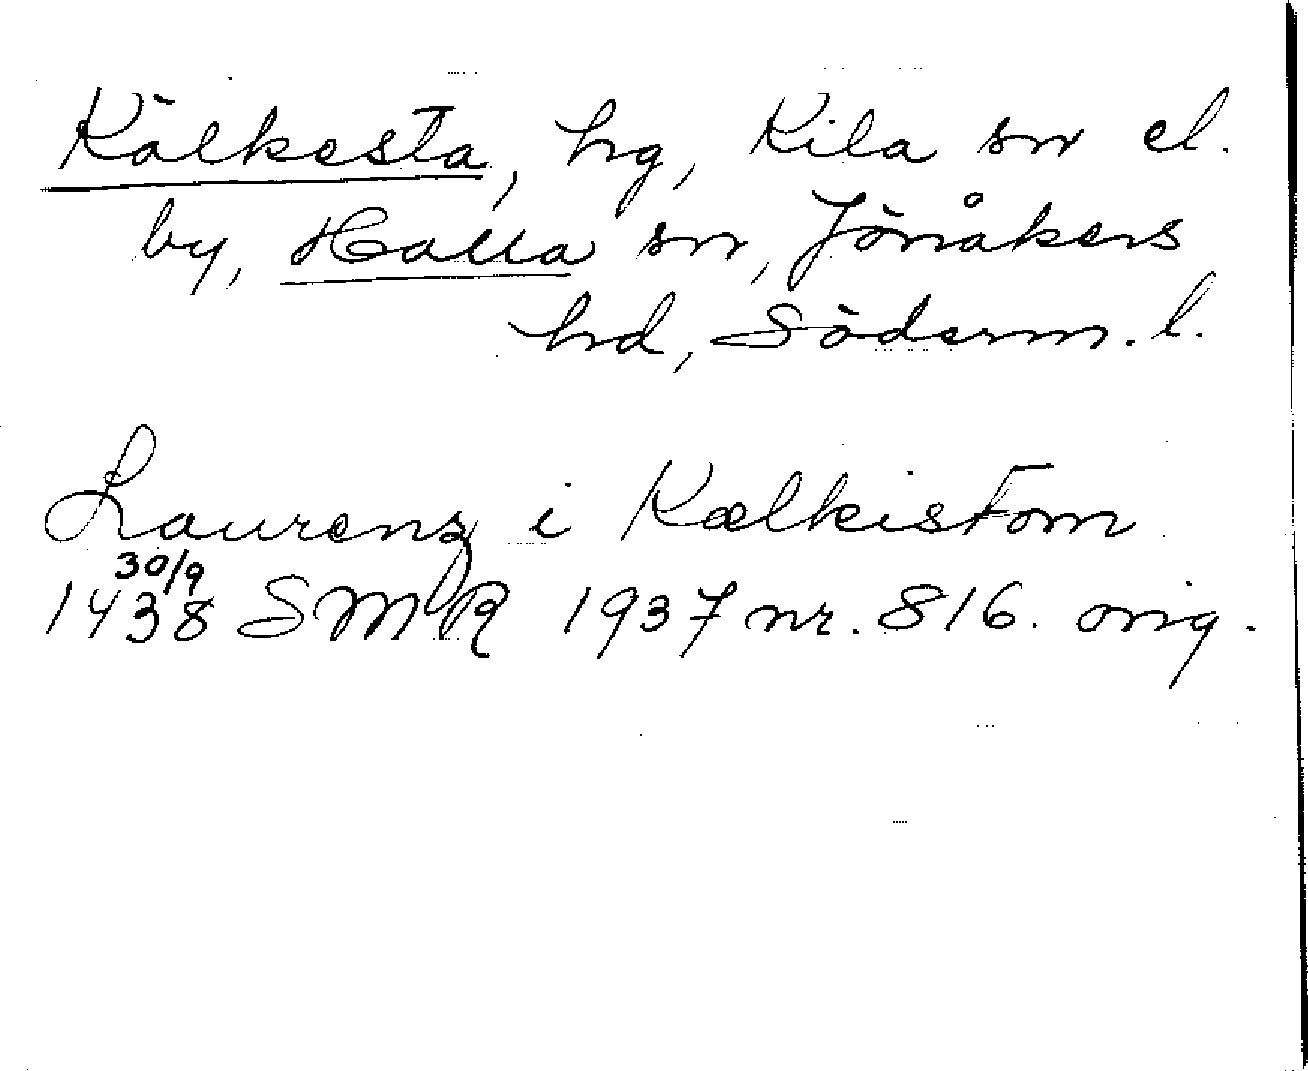 Kälkesta, hg, Kila sn el.
by, Halla sn, Jönåkers
hd, Söderm. l.
Laurenz i Kælkistom
30/9
1438 SMR 1937 nr. 816. orig.